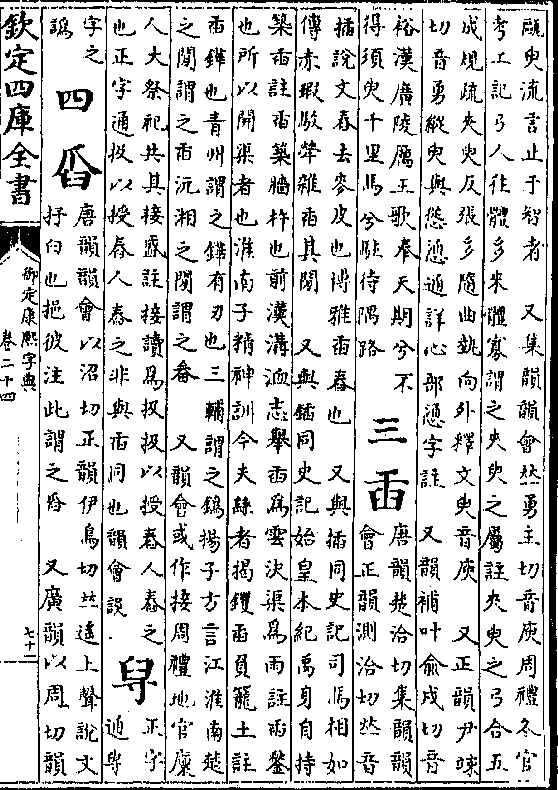 甌臾流言止于智者　又集韻韻會𠀤勇主切音庾周禮冬官
考工記弓人往體多來體寡謂之夾臾之屬註夾臾之弓合五
成規疏夾臾反張多隨曲埶向外釋文臾音庾　又正韻尹竦
切音勇縱臾與慫慂通詳心部慂字註　又韻補叶俞戍切音
裕漢廣陵厲王歌奉天期兮不
得須臾千里馬兮駐待隅路
三臿
唐韻楚洽切集韻韻
會正韻測洽切𠀤音
插說文舂去麥皮也博雅臿舂也　又與插同史記司馬相如
傳赤瑕駁犖雜臿其閒　又與鍤同史記始皇本紀禹身自持
築臿註臿築牆杵也前漢溝洫志舉臿爲雲決渠爲雨註臿鍫
也所以開渠者也淮南子精神訓今夫繇者揭钁臿負籠土註
臿鏵也青州謂之鏵有刃也三輔謂之鎢揚子方言江淮南楚
之閒謂之臿沅湘之閒謂之畚　又韻會或作接周禮地官廩
人大祭祀共其接盛註接讀爲扱扱以授舂人舂之
也正字通扱以授舂人舂之非與臿同也韻會誤
正字
通
字之
譌
四舀
唐韻韻會以沼切正韻伊鳥切𠀤遙上聲說文
抒臼也挹彼注此謂之舀　又廣韻以周切韻
欽定四庫全書
御定康熙字典
卷二十四
七十一